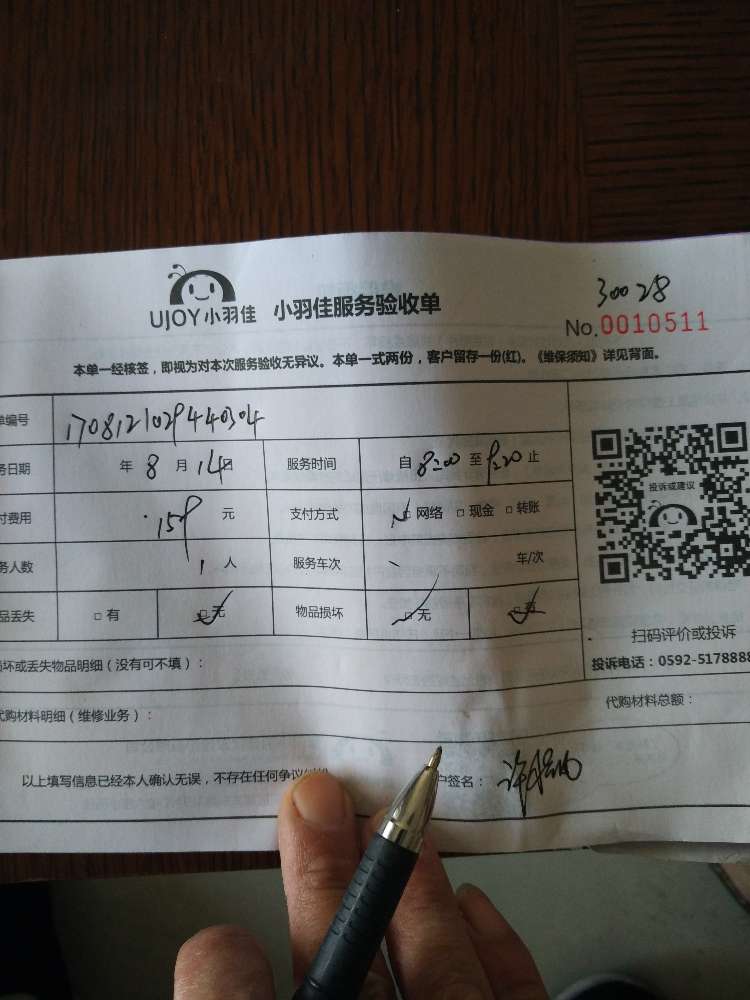 30028
UJOY小羽佳 小羽佳服务验收单 No.0010511
本单一经核签，即视为对本次服务验收无异议。本单一式两份，客户留存一份(红)。《维保须知》详见背面。
单编号 1708121029440304
务日期 年 8 月 14 日 服务时间 自 8:00 至 9:20 止
付费用 159 元 支付方式 □网络 □现金 □转账
务人数 1 人 服务车次 车/次
品丢失 □有 □无 物品损坏 □无 □有
投诉或建议
扫码评价或投诉
投诉电话：0592-5178888
损坏或丢失物品明细（没有可不填）：
代购材料明细（维修业务）： 代购材料总额：
以上填写信息已经本人确认无误，不存在任何争议 户签名：